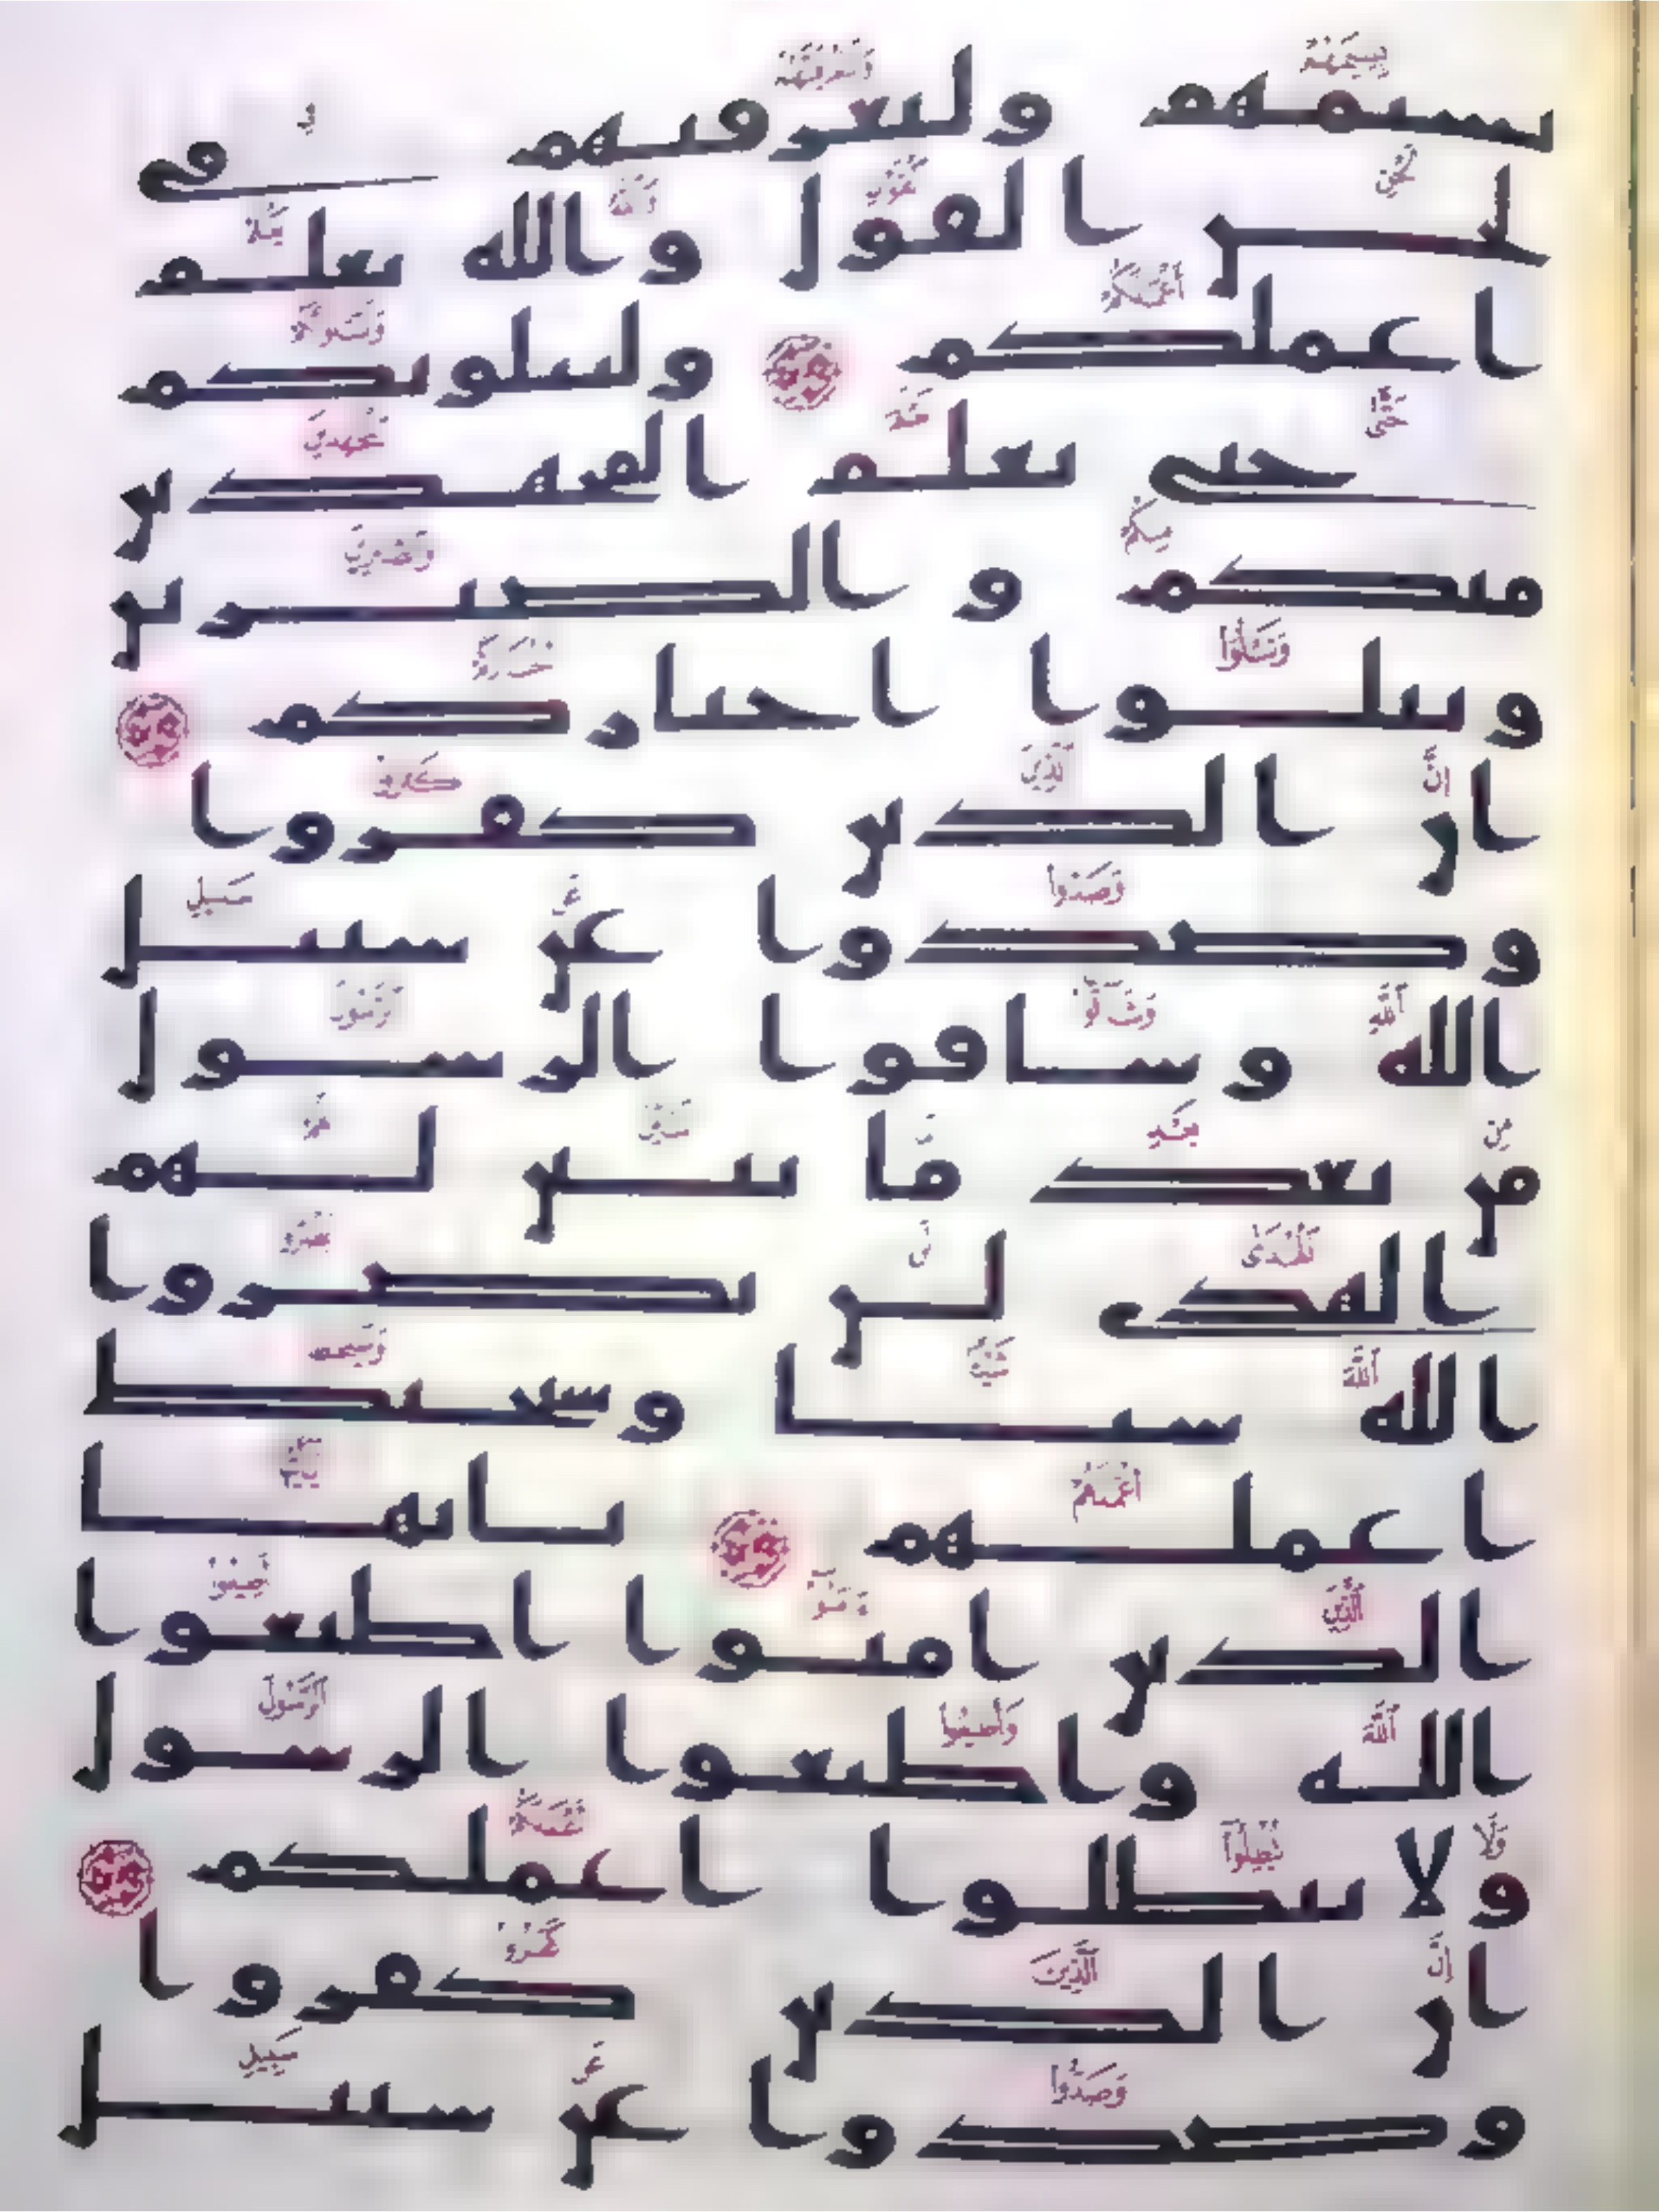 بسيمهم ولتعرفنهم في
لحن القول والله يعلم
اعملكم ولنبلونكم
حتى نعلم المجهدين
منكم والصبرين
ونبلوا اخباركم
ان الذين كفروا
وصدوا عن سبيل
الله وشاقوا الرسول
من بعد ما تبين لهم
الهدى لن يضروا
الله شيا وسيحبط
اعملهم يايها
الذين امنوا اطيعوا
الله واطيعوا الرسول
ولا تبطلوا اعملكم
ان الذين كفروا
وصدوا عن سبيل